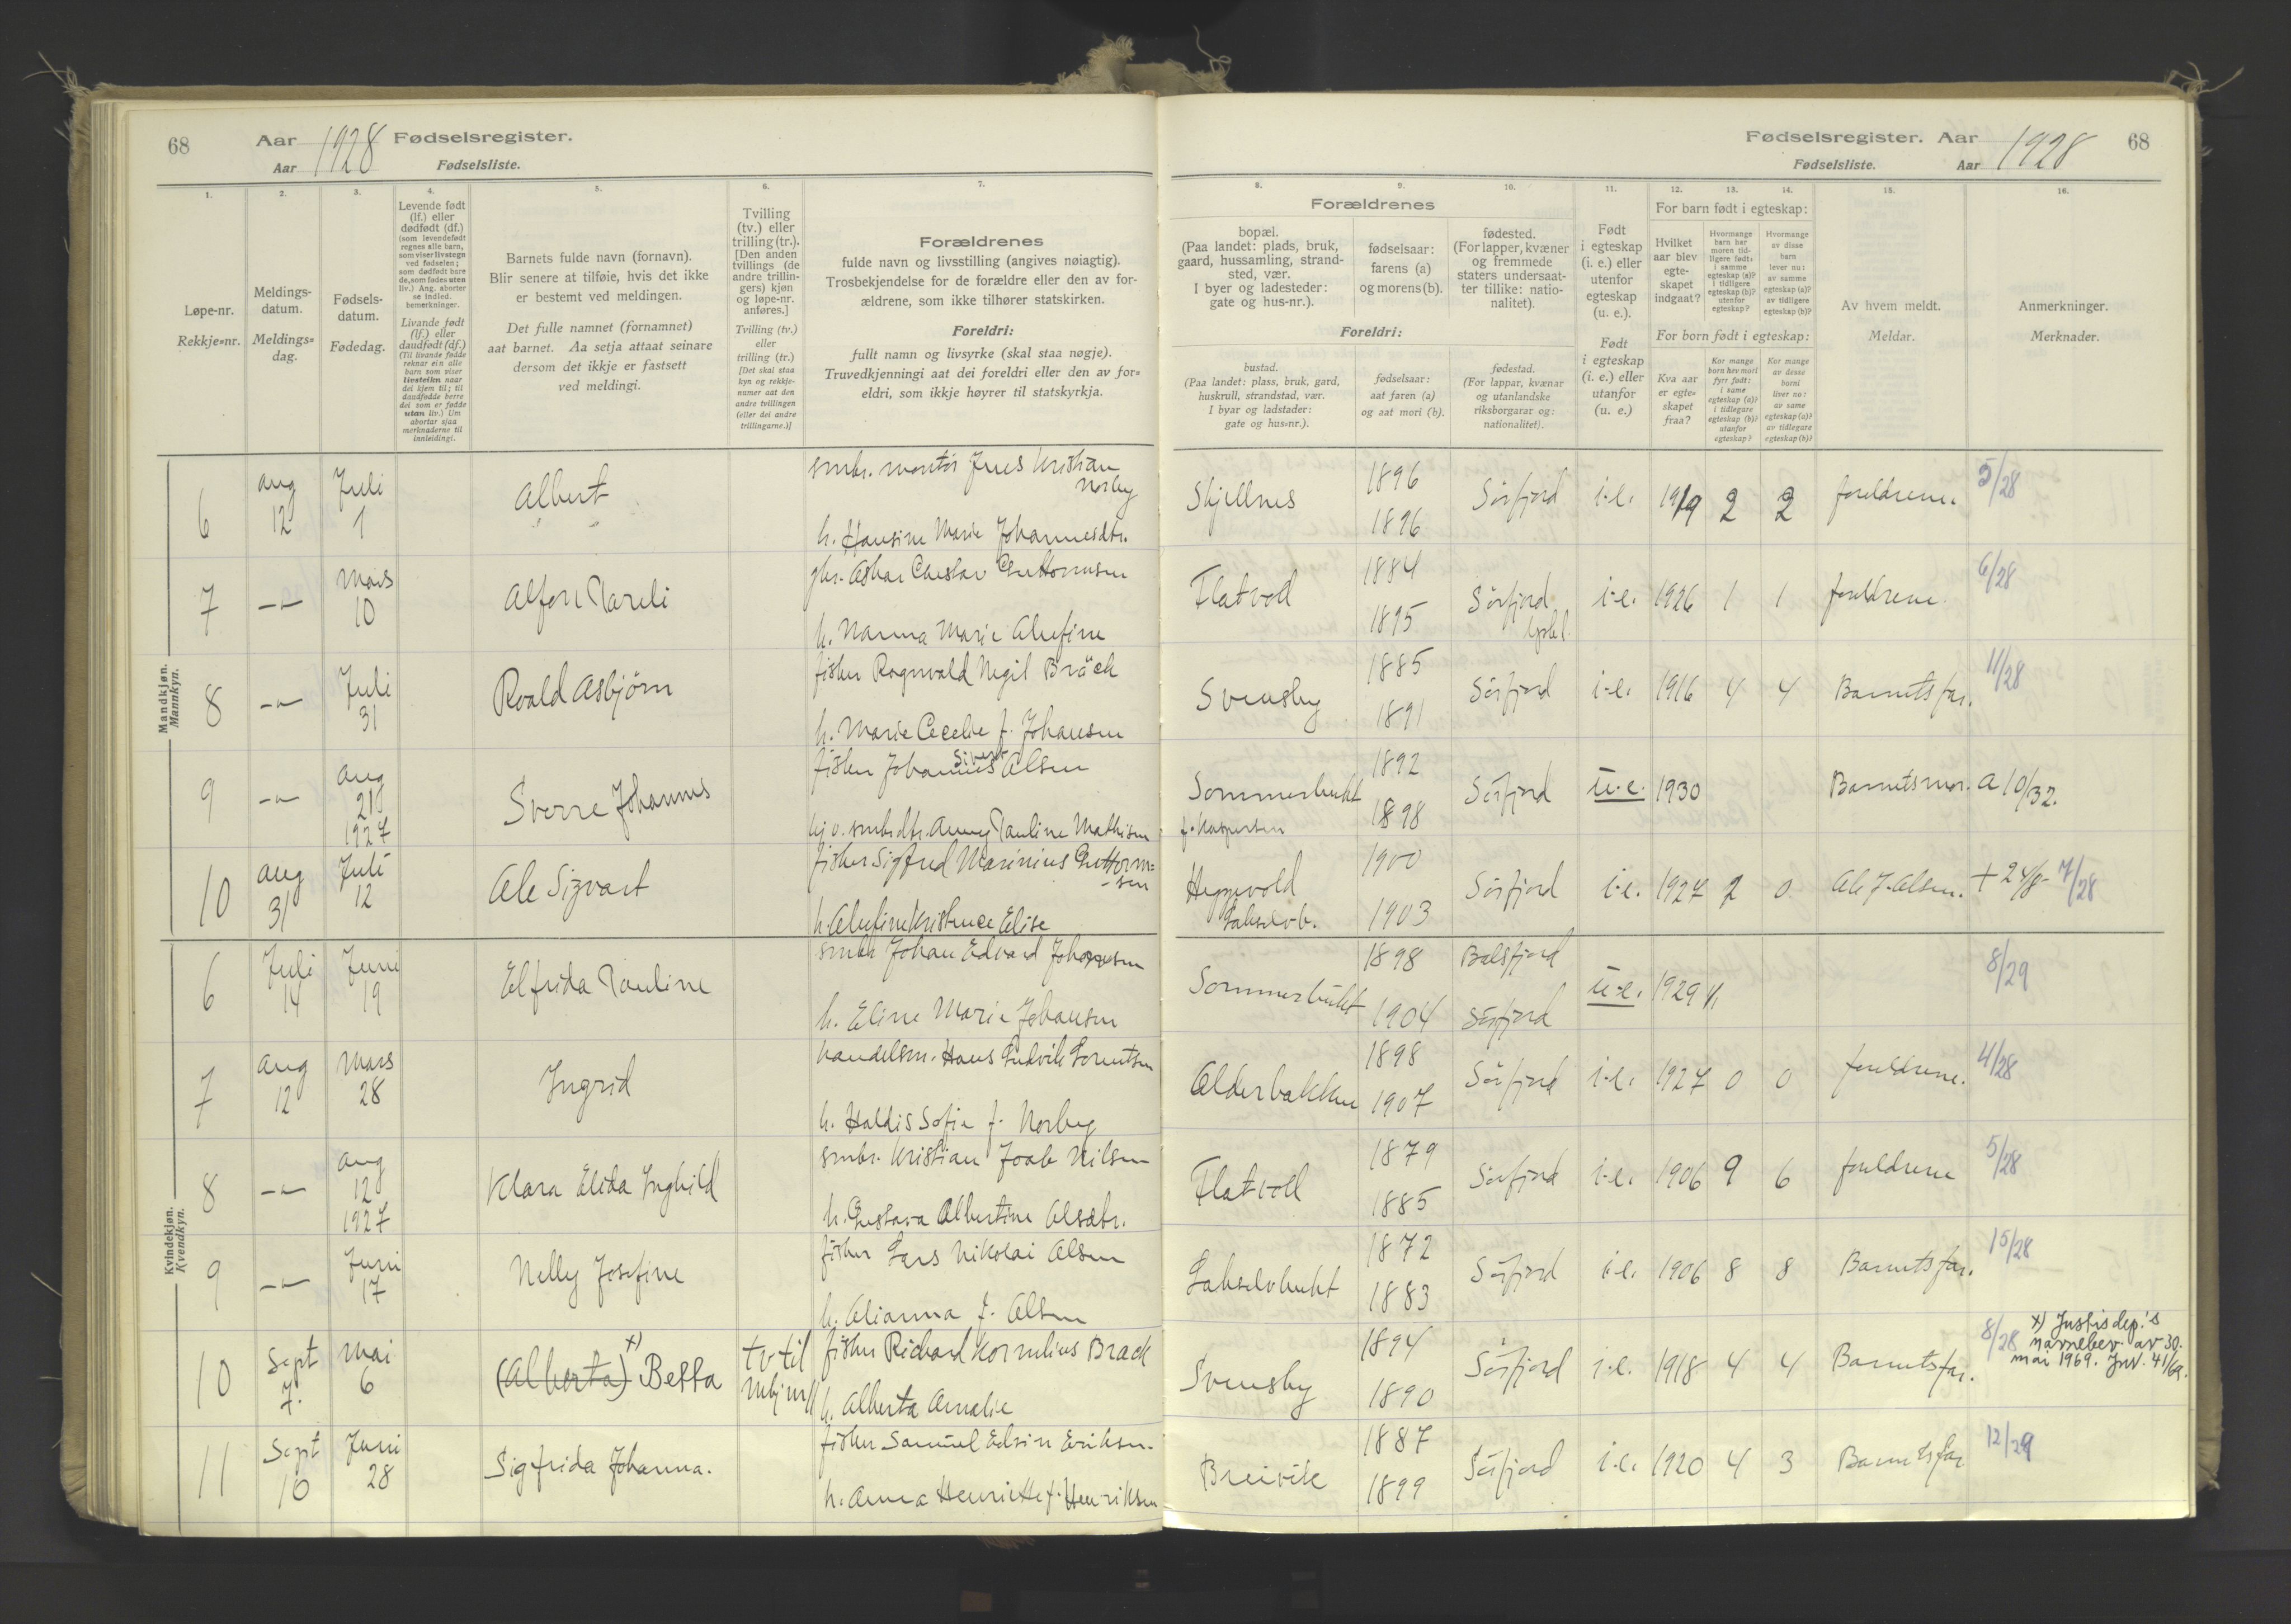 68
Aar 1928 Fødselsregister.
Aar Fødselsliste.
1.
2.
3.
4.
5.
6.
7.
Løpe-nr.
Rekkje=nr.
Meldings-
datum.
Meldings=
dag.
Fødsels-
datum.
Fødedag.
Levende født
(lf.) eller
dødfødt (df.)
(som levendefødt
regnes alle barn,
som viser livstegn
ved fødselen;
som dødfødt bare
de, som fødes uten
liv.) Ang. aborter
se indled.
bemerkninger.
Livande født
(lf.) eller
daudfødt (df.)
(Til livande fødde
reknar ein alle
born som viser
livsteikn naar
dei kjem til; til
daudfødde berre
dei som er fødde
utan liv.) Um
abortar sjaa
merknaderne til
innleidingi.
Barnets fulde navn (fornavn).
Blir senere at tilføie, hvis det ikke
er bestemt ved meldingen.
Det fulle namnet (fornamnet)
aat barnet. Aa setja attaat seinare
dersom det ikkje er fastsett
ved meldingi.
Tvilling
(tv.) eller
trilling (tr.).
[Den anden
tvillings (de
andre trillin-
gers) kjøn
og løpe-nr.
anføres.]
Tvilling (tv.)
eller
trilling (tr.)
[Det skal staa
kyn og rekkje-
numer aat den
andre tvillingen
(eller dei andre
trillingarne.)]
Forældrenes
fulde navn og livsstilling (angives nøiagtig).
Trosbekjendelse for de forældre eller den av for-
ældrene, som ikke tilhører statskirken.
Foreldri:
fullt namn og livsyrke (skal staa nøgje).
Truvedkjenningi aat dei foreldri eller den av for=
eldri, som ikkje høyrer til statskyrkja.
Mandkjøn.
Mannkyn.
6
Aug
12
Juli
1
Albert
smbr. montör Jens Kristian
Norbey
h. Hansine Marie Johannesdtr.
7
-"-
Mars
10
Alfon Pareli
gbr. Askar Gustav Guttormsen
h. Nanna Marie Alufine
8
-"-
Juli
31
Roald Asbjörn
fisker Ragnvald Negil Bräck
h. Marie Cecelie f. Johansen
9
-"-
Aug
21
1927
Sverre Johannes
fisker Johannes Sivert Olsen
ug. v. smbrdtr. Anny Pauline Mathisen
10
Aug
31
Juli
12
Ole Sigvart
fisker Sigfred Marinius Guttorm=
-sen
h. Alufine Kristence Elise
Kvindekjøn.
Kvendkyn.
6
Juli
14
Juni
19
Elfrida Pauline
smbr Johan Edvard Johansen
h. Eline Marie Johansen
7
Aug
12
Mars
28
Ingrid
handelsm. Hans Ludvik Lorentsen
h. Haldis Sofie f. Norbey
8
-"-
Aug
12
1927
Klara Elida Inghild
smbr. Kristian Joab Nilsen
h. Gustava Albertine Olsdtr.
9
-"-
Juni
17
Nelly Josefine
fisker Lars Nikolai Olsen
h. Alianna f. Olsen
10
Sept
7.
Mai
6
(Alberta) x) Betta
tv til
mkj nr 11
fisker Richard Kornelius Brack
h. Alberta Amalie
11
Sept
16
Juni
28
Sigfrida Johanna.
fisker Samuel Edvin Eriksen.
h. Anna Henriette f. Henriksen
Fødselsregister. Aar 1928 68
Fødselsliste. Aar
8.
9.
10.
11.
12.
13.
14.
15.
16.
Forældrenes
bopæl.
(Paa landet: plads, bruk,
gaard, hussamling, strand-
sted, vær.
I byer og ladesteder:
gate og hus-nr.).
fødselsaar:
farens (a)
og morens (b).
fødested.
(For lapper, kvæner
og fremmede
staters undersaat-
ter tillike: natio-
nalitet).
Foreldri:
bustad.
(Paa landet: plass, bruk, gard,
huskrull, strandstad, vær.
I byar og ladstader:
gate og hus=nr.).
fødselsaar:
aat faren (a)
og aat mori (b).
fødestad.
(For lappar, kvænar
og utanlandske
riksborgarar og:
nationalitet).
Født
i egteskap
(i. e.) eller
utenfor
egteskap
(u. e.).
Født
i egteskap
(i. e.) eller
utanfor
(u. e.)
For barn født i egteskap:
Hvilket
aar blev
egte-
skapet
indgaat?
Hvormange
barn har
moren tid-
ligere født:
i samme
egteskap (a)?
i tidligere
egteskap (b)?
utenfor
egteskap?
Hvormange
av disse
barn
lever nu:
av samme
egteskap (a)?
av tidligere
egteskap (b)?
For born født i egteskap:
Kva aar
er egte=
skapet
fraa?
Kor mange
born hev mori
fyrr født:
i same
egteskap (a)?
i tidlegare
egteskap (b)?
utanfor
egteskap?
Kor mange
av desse
borni
liver no:
av same
egteskap (a)?
av tidlegare
egteskap (b)?
Av hvem meldt.
Meldar.
Anmerkninger.
Merknader.
Skjellnes
1896
1896
Sörfjord
i.e.
1919
2
2
foreldrene.
5/28
Flatvod
1884
1895
Sörfjord
i.e.
1926
1
1
foreldrene.
6/28
Svensby
1885
1891
Sörfjord
i.e.
1916
4
4
Barnets far.
11/28
Sommerbukt
f. Kaspersen
1892
1898
Sörfjord
u.e.
1930
Barnets mor.
a 10/32.
Heggvold
Lakselvb.
1900
1903
Sörfjord
i.e.
1927
2
0
Ole J. Olsen.
+ 24/8- 7/28
Sommerbukt
1898
1904
Balsfjord
Sörfjord
u.e.
1929
8/29
Olderbakken
1898
1907
Sörfjord
i.e.
1927
0
0
foreldrene.
4/28
Flatvoll
1879
1885
Sörfjord
i.e.
1906
9
6
foreldrene
5/28
Lakselvbukt
1872
1883
Sörfjord
i.e.
1906
8
8
Barnets far.
15/28
Svensby
1894
1890
Sörfjord
i.e.
1918
4
4
Barnets far.
8/28
x) Justisdep.'s
navnebev. av 30.
mai 1969. Jnr. 41/69.
Breivik
1887
1899
Sörfjord
i.e.
1920
4
3
Barnets far
12/29